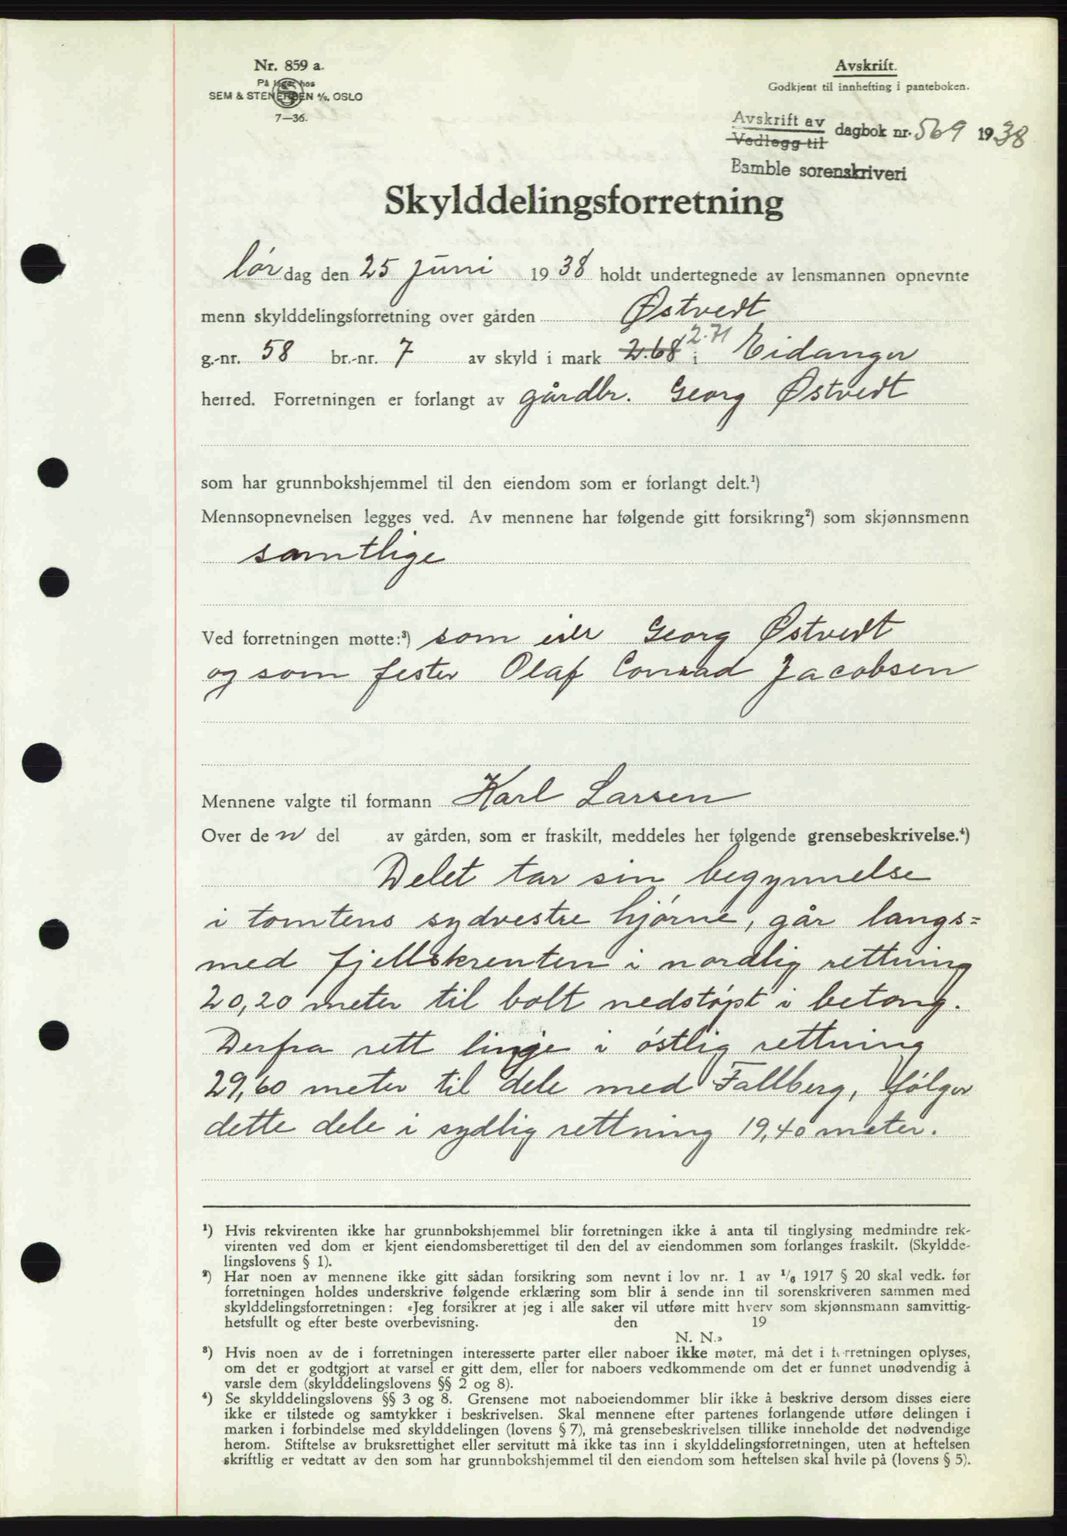 Nr. 859 a.
På lager hos
SEM & STENERSEN A/S. OSLO
7—36.
Avskrift.
Godkjent til innhefting i panteboken.
Avskrift av
Vedlegg til
dagbok nr. 569 1938
Bamble sorenskriveri
Skylddelingsforretning
lørdag den 25 juni 1938 holdt undertegnede av lensmannen opnevnte
menn skylddelingsforretning over gården Østvedt
g.-nr. 58 br.-nr. 7 av skyld i mark 2.68 2.71 i Eidanger
herred. Forretningen er forlangt av gårdbr. Georg Østvedt
som har grunnbokshjemmel til den eiendom som er forlangt delt.¹)
Mennsopnevnelsen legges ved. Av mennene har følgende gitt forsikring²) som skjønnsmenn
samtlige
Ved forretningen møtte:³) som eier Georg Østvedt
og som fester Olaf Conrad Jacobsen
Mennene valgte til formann Karl Larsen
Over de n del av gården, som er fraskilt, meddeles her følgende grensebeskrivelse.⁴)
Delet tar sin begynnelse
i tomtens sydvestre hjørne, går langs=
med fjellskrenten i nordlig rettning
20,20 meter til bolt nedstøpt i betong.
Derfra rett linje i østlig rettning
29,60 meter til dele med Fallberg, følger
dette dele i sydlig rettning 19,40 meter.
¹) Hvis rekvirenten ikke har grunnbokshjemmel blir forretningen ikke å anta til tinglysing medmindre rek-
virenten ved dom er kjent eiendomsberettiget til den del av eiendommen som forlanges fraskilt. (Skyldde-
lingslovens § 1).
²) Har noen av mennene ikke gitt sådan forsikring som nevnt i lov nr. 1 av 1/6 1917 § 20 skal vedk. før
forretningen holdes underskrive følgende erklæring som blir å sende inn til sorenskriveren sammen med
skylddelingsforretningen: «Jeg forsikrer at jeg i alle saker vil utføre mitt hverv som skjønnsmann samvittig-
hetsfullt og efter beste overbevisning. den 19
N. N.»
³) Hvis noen av de i forretningen interesserte parter eller naboer ikke møter, må det i forretningen oplyses,
om det er godtgjort at varsel er gitt dem, eller for naboers vedkommende om det er funnet unødvendig å
varsle dem (skylddelingslovens §§ 2 og 8).
⁴) Se skylddelingslovens §§ 3 og 8. Grensene mot naboeiendommer blir ikke å beskrive dersom disses eiere
ikke er tilstede og samtykker i beskrivelsen. Skal mennene efter partenes forlangende utføre delingen i
marken i forbindelse med skylddelingen (lovens § 7), må grensebeskrivelsen tillike inneholde det nødvendige
herom. Stiftelse av bruksrettighet eller servitutt må ikke tas inn i skylddelingsforretningen, uten at heftelsen
skriftlig er vedtatt av den som har grunnbokshjemmel til den eiendom som heftelsen skal hvile på (lovens § 5).